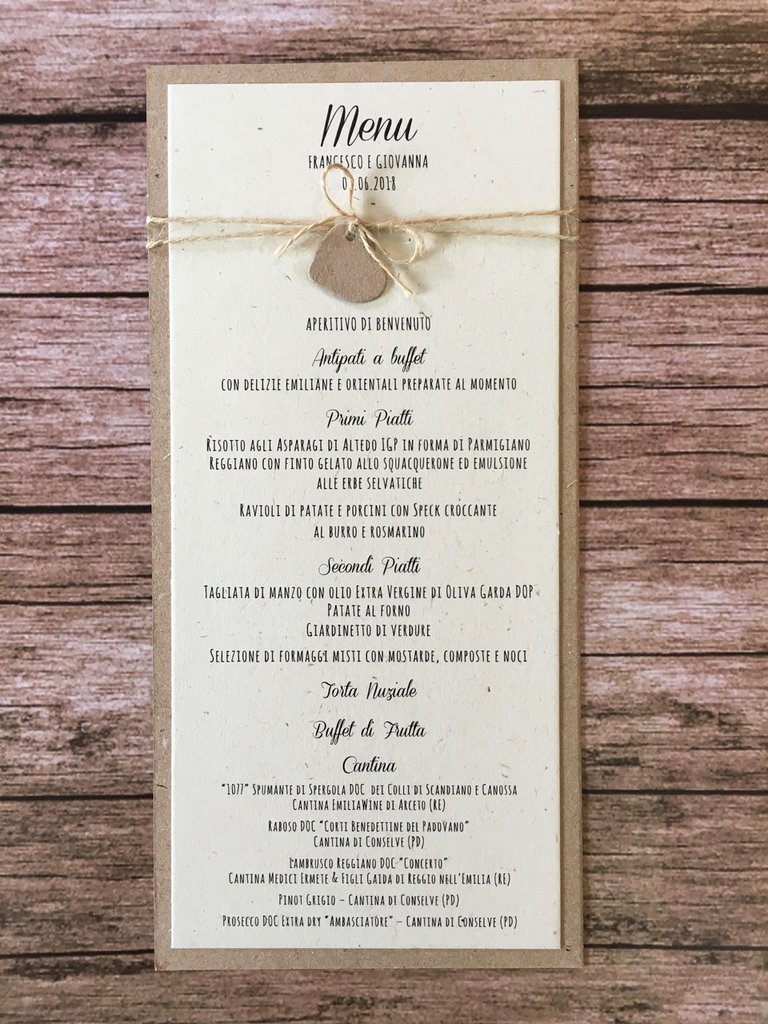 Menu
FRANCESCO E GIOVANNA
.06.2018
APERITIVO DI BENVENUTO
Antipati a buffet
CON DELIZIE EMILIANE E ORIENTALI PREPARATE AL MOMENTO
Primi Piatti
RISOTTO AGLI ASPARAGI DI ALTEDO IGP IN FORMA DI PARMIGIANO
REGGIANO CON FINTO GELATO ALLO SQUACQUERONE ED EMULSIONE
ALLE ERBE SELVATICHE
RAVIOLI DI PATATE E PORCINI CON SPECK CROCCANTE
AL BURRO E ROSMARINO
Secondi Piatti
TAGLIATA DI MANZO CON OLIO EXTRA VERGINE DI OLIVA GARDA DOP
PATATE AL FORNO
GIARDINETTO DI VERDURE
SELEZIONE DI FORMAGGI MISTI CON MOSTARDE, COMPOSTE E NOCI
Torta Nuziale
Buffet di Frutta
Cantina
"1077" SPUMANTE DI SPERGOLA DOC DEI COLLI DI SCANDIANO E CANOSSA
CANTINA EMILIAWINE DI ARCETO (RE)
RABOSO DOC "CORTI BENEDETTINE DEL PADOVANO"
CANTINA DI CONSELVE (PD)
LAMBRUSCO REGGIANO DOC "CONCERTO"
CANTINA MEDICI ERMETE & FIGLI GAIDA DI REGGIO NELL'EMILIA (RE)
PINOT GRIGIO – CANTINA DI CONSELVE (PD)
PROSECCO DOC EXTRA DRY "AMBASCIATORE" – CANTINA DI CONSELVE (PD)